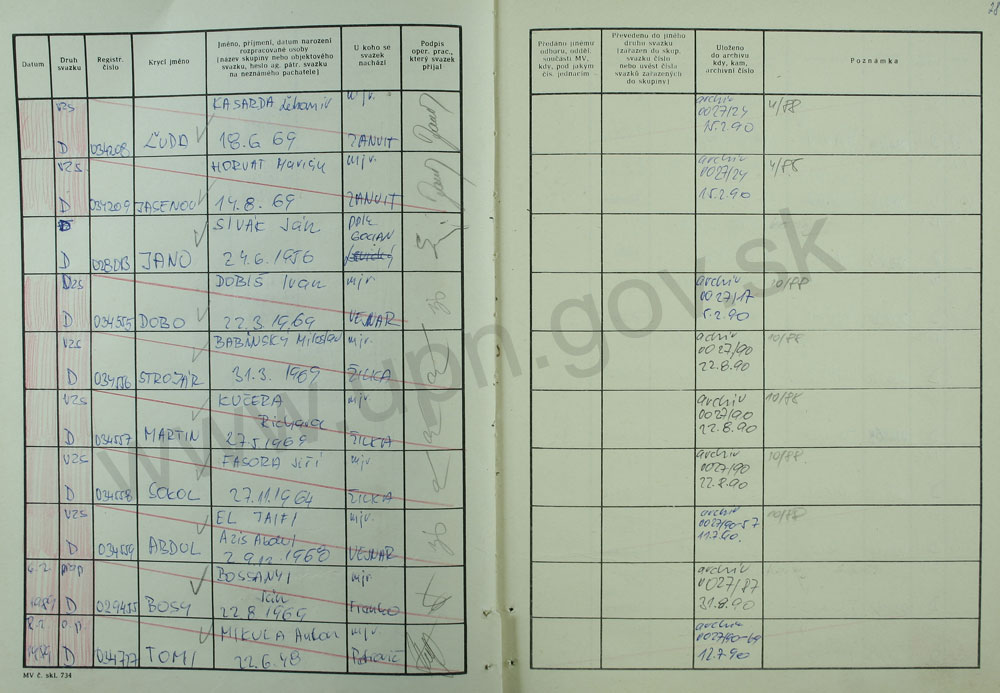 28
Datum
Druh svazku
Registr. číslo
Krycí jméno
Jméno, příjmení, datum narození
rozpracované osoby
(název skupiny nebo objektového
svazku, heslo ag. pátr. svazku
na neznámého pachatele)
U koho se
svazek
nachází
Podpis
oper. prac.,
který svazek
přijal
Předáno jinému
odboru, odděl.
součásti MV,
kdy, pod jakým
čís. jednacím
Převedeno do jiného
druhu svazku
(zařazen do skup.
svazku nebo
nebo uvést čísla
svazků zařazených
do skupiny)
Uloženo
do archivu
kdy, kam,
archivní číslo
Poznámka
VZS KASARDA mjr. archiv 4/88
0027/24
D 034208 ĽUDA 18.6 69 ZANVIT 15.2.90
VZS HORVAT mjr. archiv
0027/24
D 034209 JASENOV 14.8.69 ZANVIT 15.2.90
SIVÁK Ján pplk
GOCIAN
D JANO 24.6.1956
VZS DOBIŠ Ivan mjr. archiv 10/88
0027/17
D 034555 DOBO 22.3.1969 VEJNAR 5.2.90
VZS BABINSKÝ Miloslav mjr. archiv 10/88
0027/90
D 034556 STROJÁR 31.3.1969 ŽILKA 22.8.90
VZS KUČERA mjr. archiv 10/88
Richard 0027/90
D 034557 MARTIN 27.5.1969 ŽILKA 22.8.90
VZS FASORA JIŘÍ mjr. archiv 10/88
0027/90
D 034558 SOKOL 27.11.1964 ŽILKA 22.8.90
VZS EL TAIFI mjr. archiv 10/88
Azis Abdul 0027/90-57
D 034559 ABDUL 29.12.1968 VEJNAR 11.7.90.
BOSSANYI mjr. archiv
Ján 0027/87
1989 D 029455 BOSY 22.8.1969 Franko 31.8.90
MIKULA Anton mjr. archiv
0027/90-69
1989 D TOMI 22.6.48 Petrovič 12.7.90
MV č. skl. 734
www.upn.gov.sk